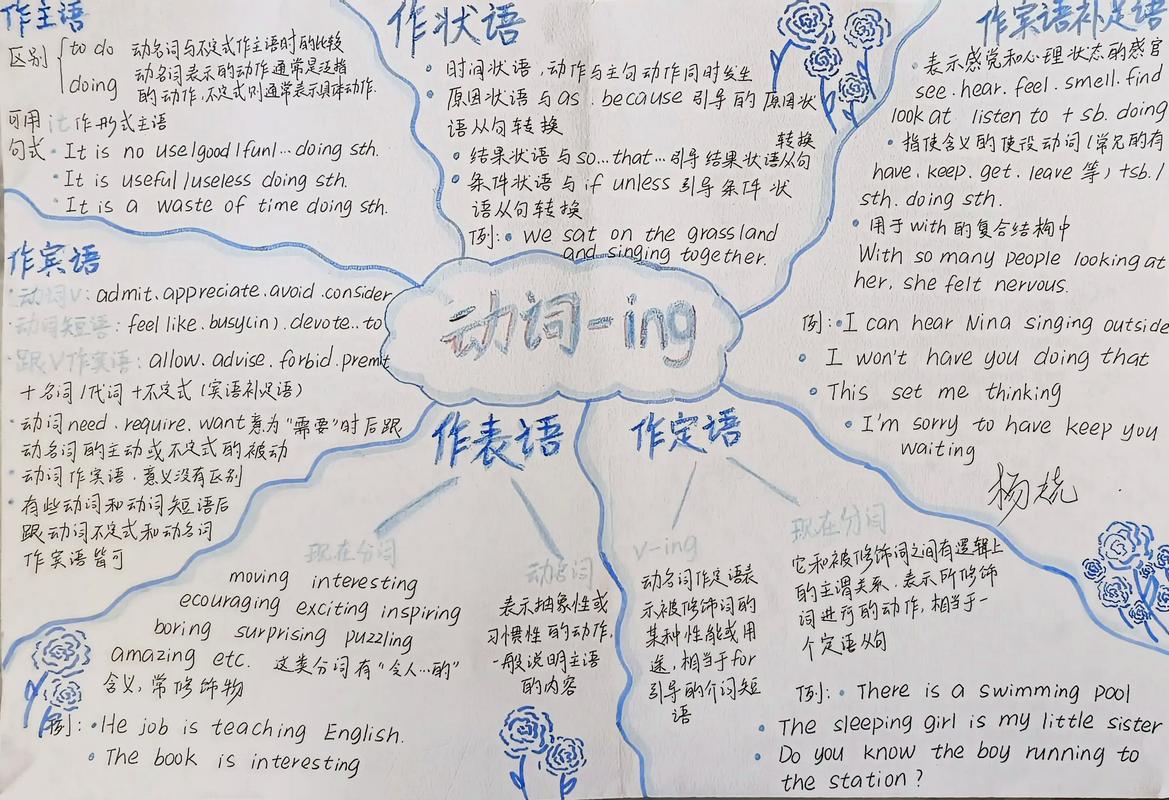 作主语
区别 to do 动名词与不定式作主语时的比较
doing 动名词表示的动作通常是泛指
的动作,不定式则通常表示具体动作.
可用it作形式主语
句式·It is no use/good/fun/…doing sth.
·It is useful/useless doing sth.
·It is a waste of time doing sth.
作状语
·时间状语,动作与主句动作同时发生
·原因状语与as.because引导的原因状
语从句转换
·结果状语与so…that…引导结果状语从句
转换
·条件状语与if unless引导条件状
语从句转换
例:·We sat on the grassland
and singing together.
作宾语补足语
·表示感觉和心理状态的感官
see.hear.feel.smell.find
look at listen to + sb. doing
·指使含义的使役动词(常见的有
have.keep.get.leave等)+sb./
sth. doing sth.
·用于with的复合结构中
With so many people looking at
her, she felt nervous.
例:·I can hear Nina singing outside
·I won't have you doing that
·This set me thinking
·I'm sorry to have keep you
waiting
作宾语
·动词V:admit.appreciate.avoid.consider
·动词短语:feel like.busy(in).devote..to
·跟V作宾语:allow.advise.forbid.premit
+名词/代词+不定式(宾语补足语)
·动词need.require.want意为"需要"时后跟
动名词的主动或不定式的被动
·动词作宾语,意义没有区别
·有些动词和动词短语后
跟动词不定式和动名词
作宾语皆可
动词-ing
作表语
现在分词
moving interesting
ecouraging exciting inspiring
boring surprising puzzling
amazing etc. 这类分词有"令人…的"
含义,常修饰物
例:·He job is teaching English.
·The book is interesting
动名词
表示抽象性或
习惯性的动作,
一般说明主语
的内容
作定语
v-ing
动名词作定语表
示被修饰词的
某种性能或用
途,相当于for
引导的介词短
语
现在分词
它和被修饰词之间有逻辑上
的主谓关系.表示所修饰
词进行的动作,相当于一
个定语从句
例:·There is a swimming pool
·The sleeping girl is my little sister
·Do you know the boy running to
the station?